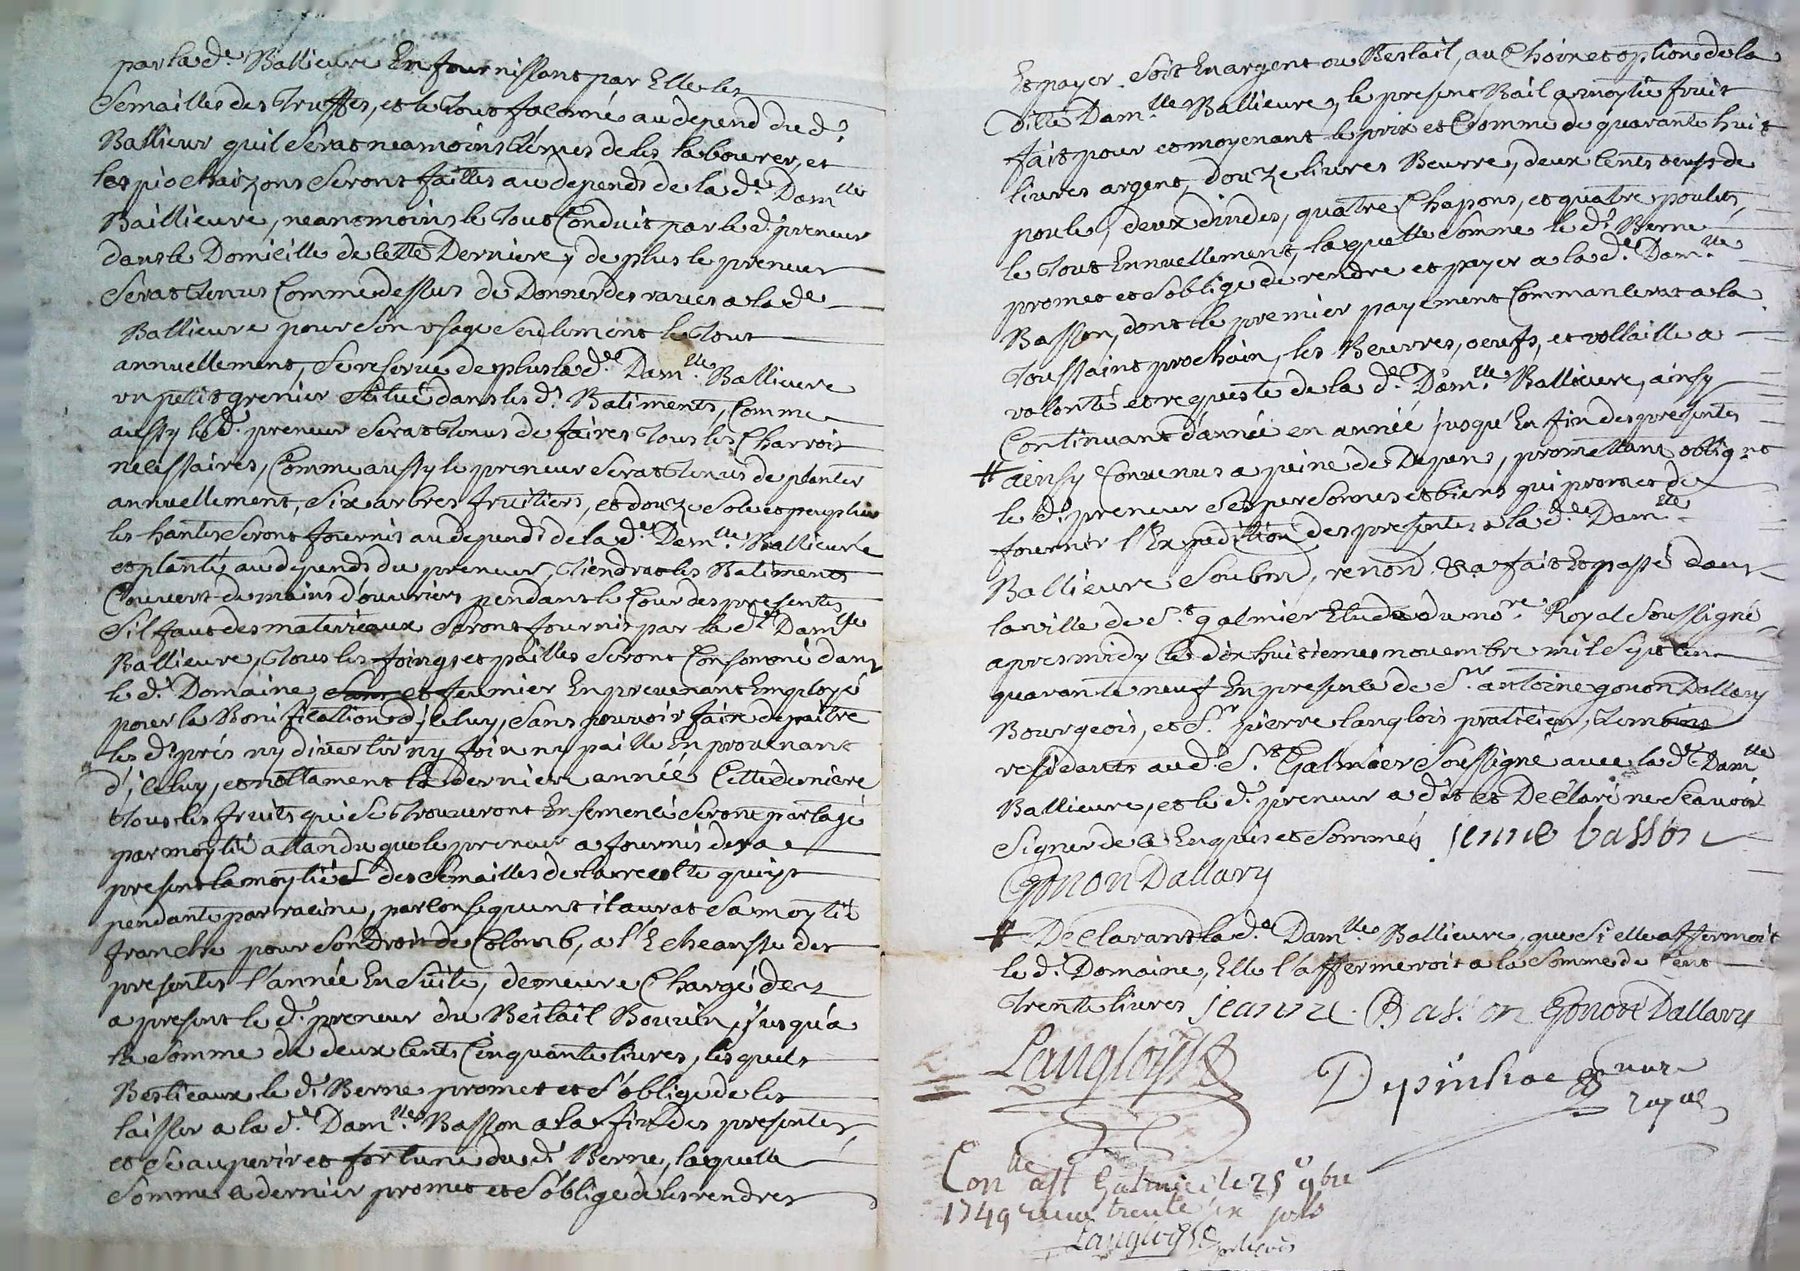 par la de. Ballieure En fournissant par Elle les
Semailles des Truffes, et le Tout façonné au dépend du d.
Ballieur quil Serat neamoins tenus de les labourer, et
les piochaizons Seront faittes au depends de la de. Damlle
Baillieure, neantmoins le Tout Conduit par le d. preneur
dans le Domicille de Cette Derniere, de plus le preneur
Serat tenus Comme dessus de Donner des raves a la de
Ballieure pour Son usage Seulement le Tout
annuellement, Se reserve de plus la de. Damlle. Ballieure
un petit grenier Scitué dans les ds. Batiments, Comme
aussy le d. preneur Serat tenus de faires tous les Charrois
necessaires, Comme aussy le preneur Serat tenus de planter
annuellement, Six arbres fruitiers, et douze Sole et peuplier
les hantes Seront fournis au depends de la de. Damlle. Ballieure
et planté au depends du preneur, tiendrat les Batiments
Couvert de mains d'ouvriers pendant le Cour des presentes
S'il faut des materieaux Seront fournis par la de. Damlle
Ballieure, Tous les foings et pailles Seront Consommé dans
le d. Domaine, et feumier En provenant Employé
pour la Bonification d'iceluy, Sans pouvoir faire depaitre
les ds. prés ny divertir ny foin ny paille En provenant
d'iceluy, et nottament la derniere année Cette derniere
tous les fruits qui Se trouveront Ensemencé Seront partagé
par moytié attandu que le preneur a fournis de sa
present la moytié des Semailles de la recolte qui est
pendante par racine, par Consequent il aurat Sa moytié
franche pour Son Droit de Colomb, a l'Echeansse des
presentes l'année En Suite, demeure Chargé des
a present le d. preneur du Bestail Bouvin, jusqu'a
la Somme de deux Cents Cinquante livres, lesquels
Bestieaux le d. Berne promet et S'oblige de les
laisser a la de. Damlle. Basson a la fin des presentes,
et Se au perir et fortune du d. Berne, laquelle
Somme Ce dernier promet et S'oblige de les rendres
Et payer Soit En argent ou Bestail, au Choix et option de la
ditte Damlle Ballieure, le present Bail a moytié fruit
fait pour et moyenant le prix et Somme de quarante huit
livres argent, douze livres Beurre, deux Cents oeufs de
poule, deux dindes, quatre Chapons, et quatre poulets,
le Tout Ennuellement, laquelle Somme le d. Berne
promet et S'oblige de rendre et payer a la de. Damlle
Basson, dont le premier payement Commancerat a la
Toussaint prochain, les Beurres, oeufs, et vollaille a
volonté et requeste de la de. Damlle. Ballieure, ainsy
Continuant d'année en année jusqu'En fin des presentes
# ainsy Convenus a peine de Depens, promettant oblignt
le d. preneur Ses personnes et biens qui promet de
fournir l'Expedition des presentes a la de. Damlle
Ballieure Soubm, renond & a fait Et passé dans
la ville de St. galmier Etude du nore. Royal Soussigné
apres midy le dix huitieme novembre mil Sept Cent
quarante neuf En presence de Sr. antoine gonon Dallary
Bourgeois, et Sr. pierre langlois praticien, temoins
residants au d. St. Galmier Soussigné avec la de. Damlle
Ballieure, et le d. preneur a dit et Déclaré ne Scavoir
Signer de Ce Enquis et Sommés jenne basson
Gonon Dallary
# Déclarant la de. Damlle. Ballieure, que Si elle affermoit
le d. Domaine, Elle l'affermeroit a la Somme de Cent
Trente livres jeanne Basson Gonon Dallary
Langlois
nore
royal
Conlle a St Galmier le 25e 9bre
1749 trente six sols
Langlois